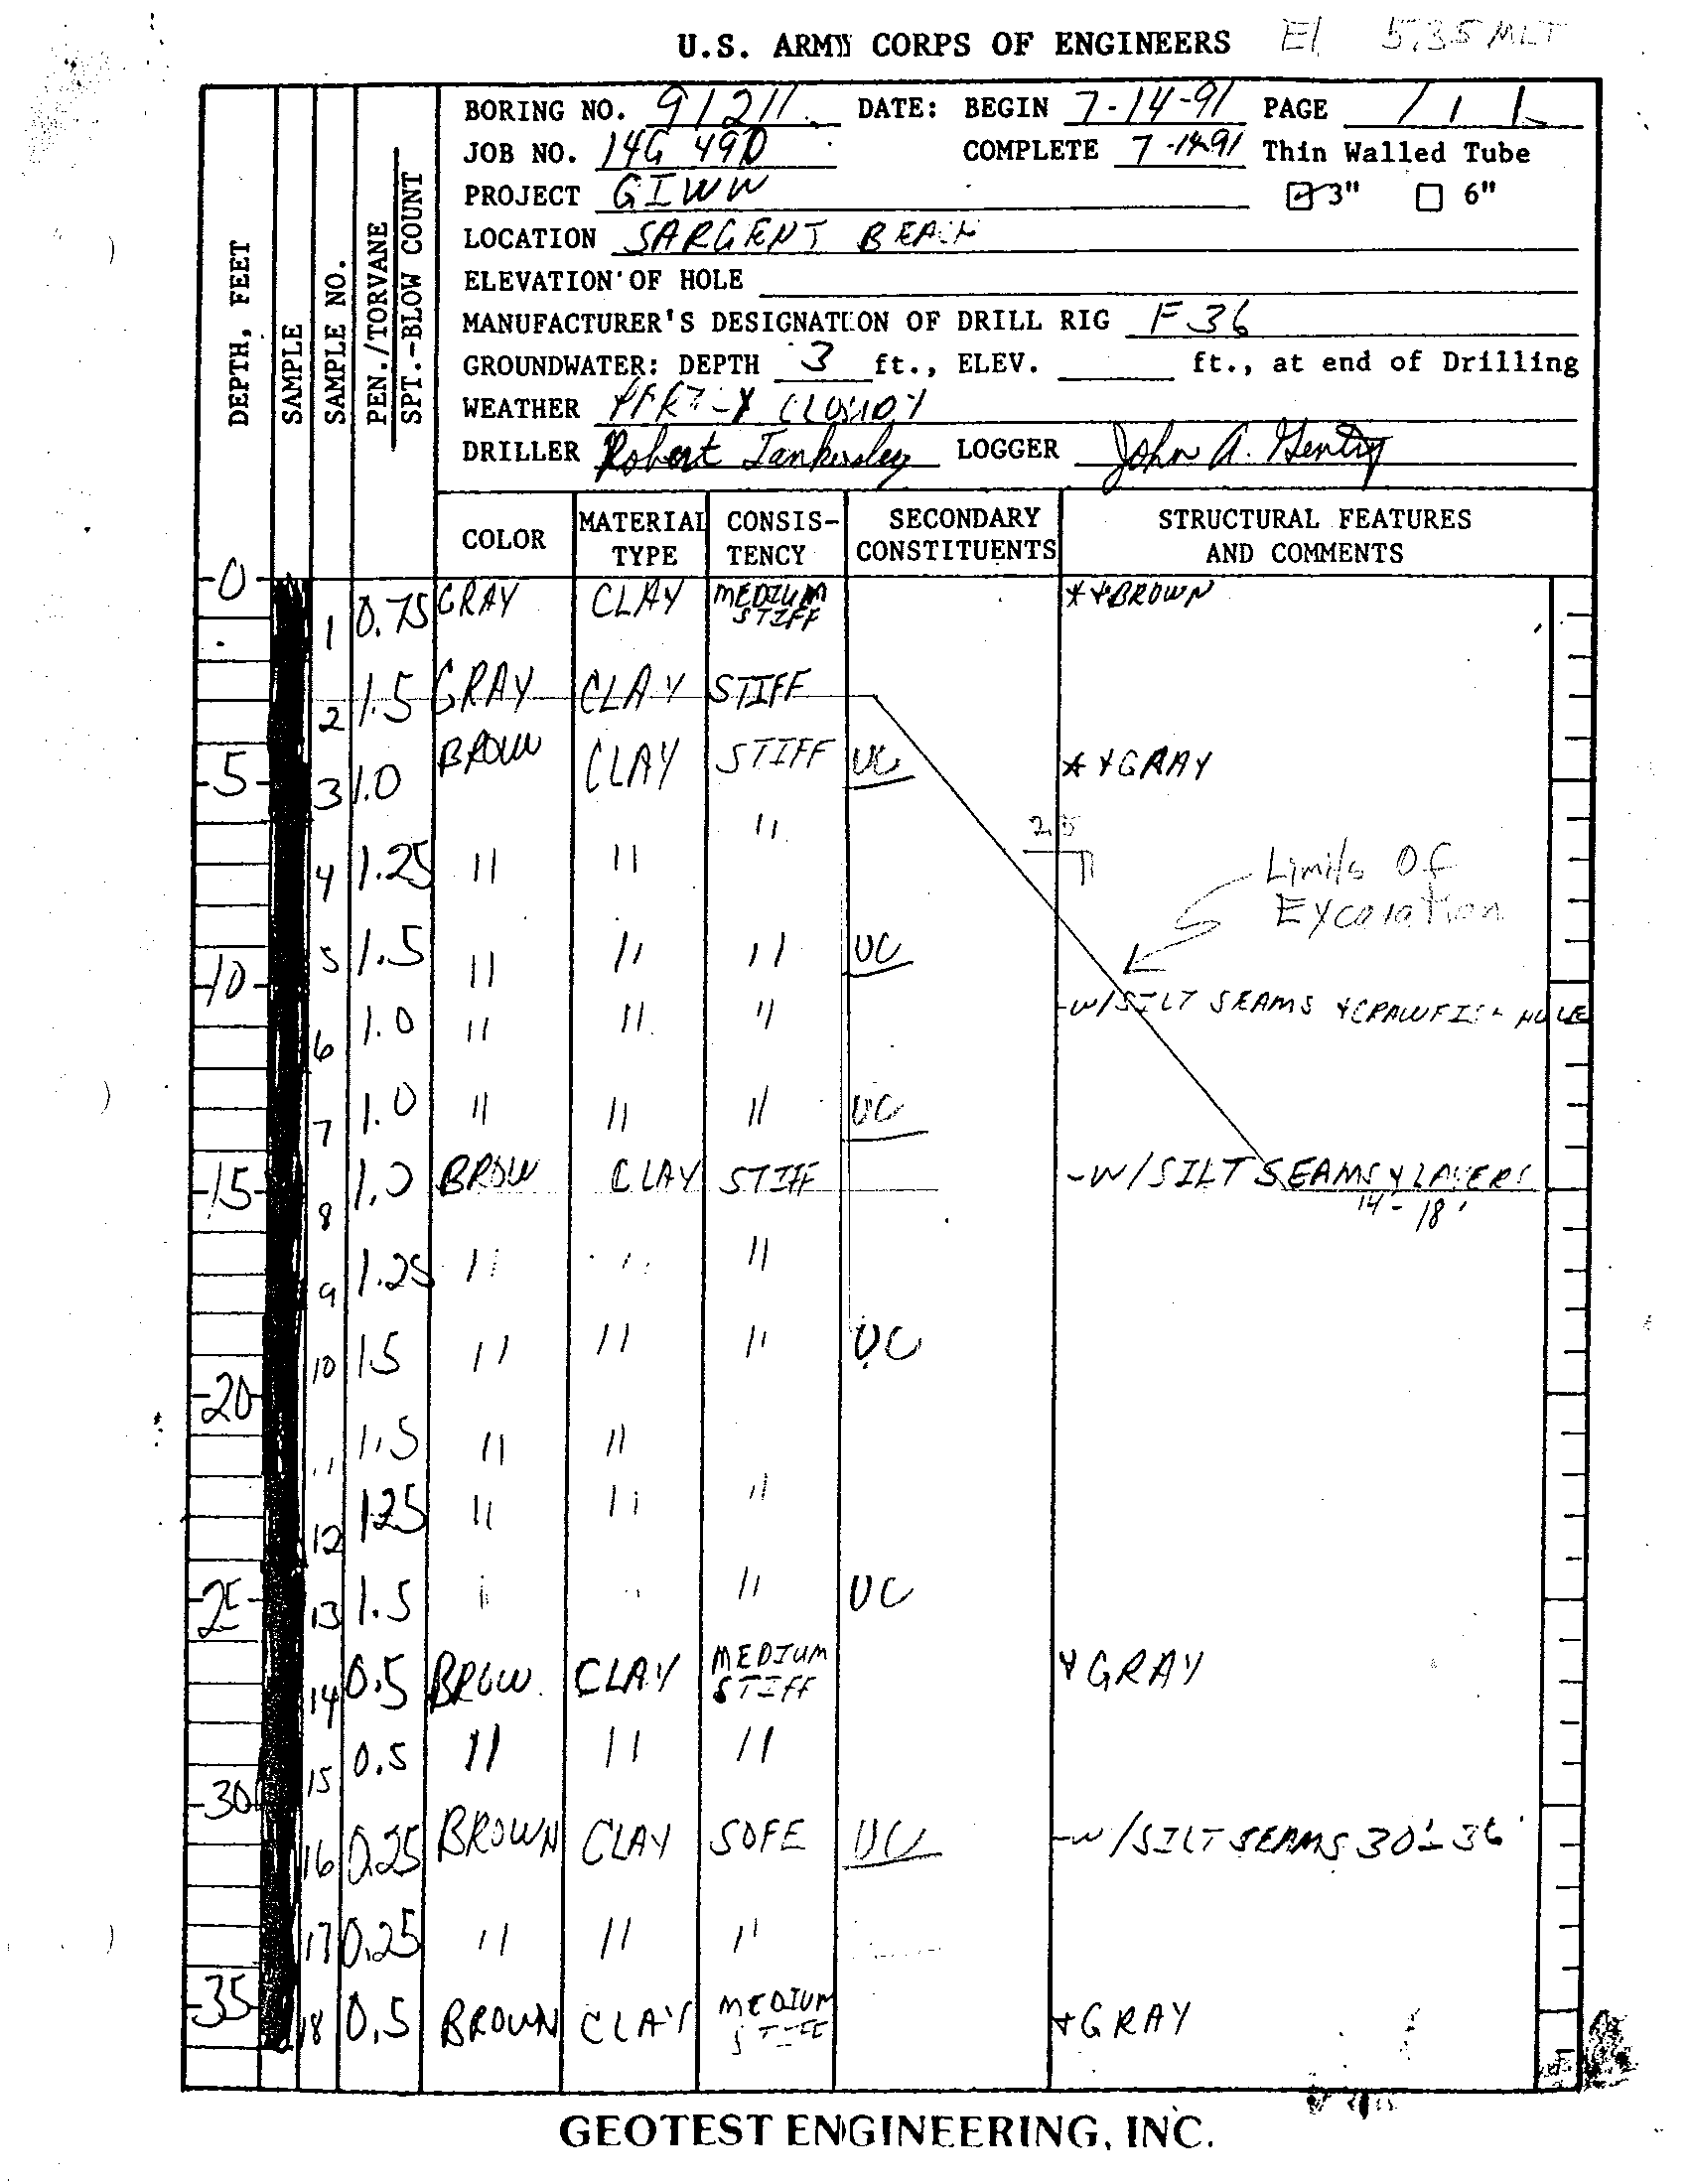 U.S. ARMY CORPS OF ENGINEERS El 5.35 MLT
BORING NO. 91211 DATE: BEGIN 7-14-91 PAGE 1 / 1
JOB NO. 14G 490 COMPLETE 7-14-91 Thin Walled Tube
PROJECT GIWW 3" 6"
LOCATION SARGENT BEACH
ELEVATION OF HOLE
MANUFACTURER'S DESIGNATION OF DRILL RIG F 36
GROUNDWATER: DEPTH 3 ft., ELEV. ft., at end of Drilling
WEATHER PARTLY CLOUDY
DRILLER Robert Tankersley LOGGER John A. Gentry
DEPTH, FEET
SAMPLE
SAMPLE NO.
PEN./TORVANE
SPT.-BLOW COUNT
COLOR MATERIAL TYPE CONSIS-TENCY SECONDARY CONSTITUENTS STRUCTURAL FEATURES AND COMMENTS
0
1 0.75 GRAY CLAY MEDIUM STIFF **BROWN
2 1.5 GRAY CLAY STIFF
5 3 1.0 BROWN CLAY STIFF UC **GRAY
2.5
1
4 1.25 " " "
Limits Of
Excavation
10 5 1.5 " " " UC
6 1.0 " " " -W/SILT SEAMS & CRAWFISH HOLE
7 1.0 " " " UC
15 8 1.0 BROW CLAY STIFF -W/SILT SEAMS & LAYERS
14-18'
9 1.25 " " "
10 1.5 " " " UC
20
11 1.5 " "
12 1.25 " " "
25 13 1.5 " " " UC
14 0.5 BROW CLAY MEDIUM STIFF & GRAY
15 0.5 " " "
30
16 0.25 BROWN CLAY SOFE UC -W/SILT SEAMS 30'-36'
17 0.25 " " "
35 18 0.5 BROWN CLAY MEDIUM STIFF & GRAY
GEOTEST ENGINEERING, INC.